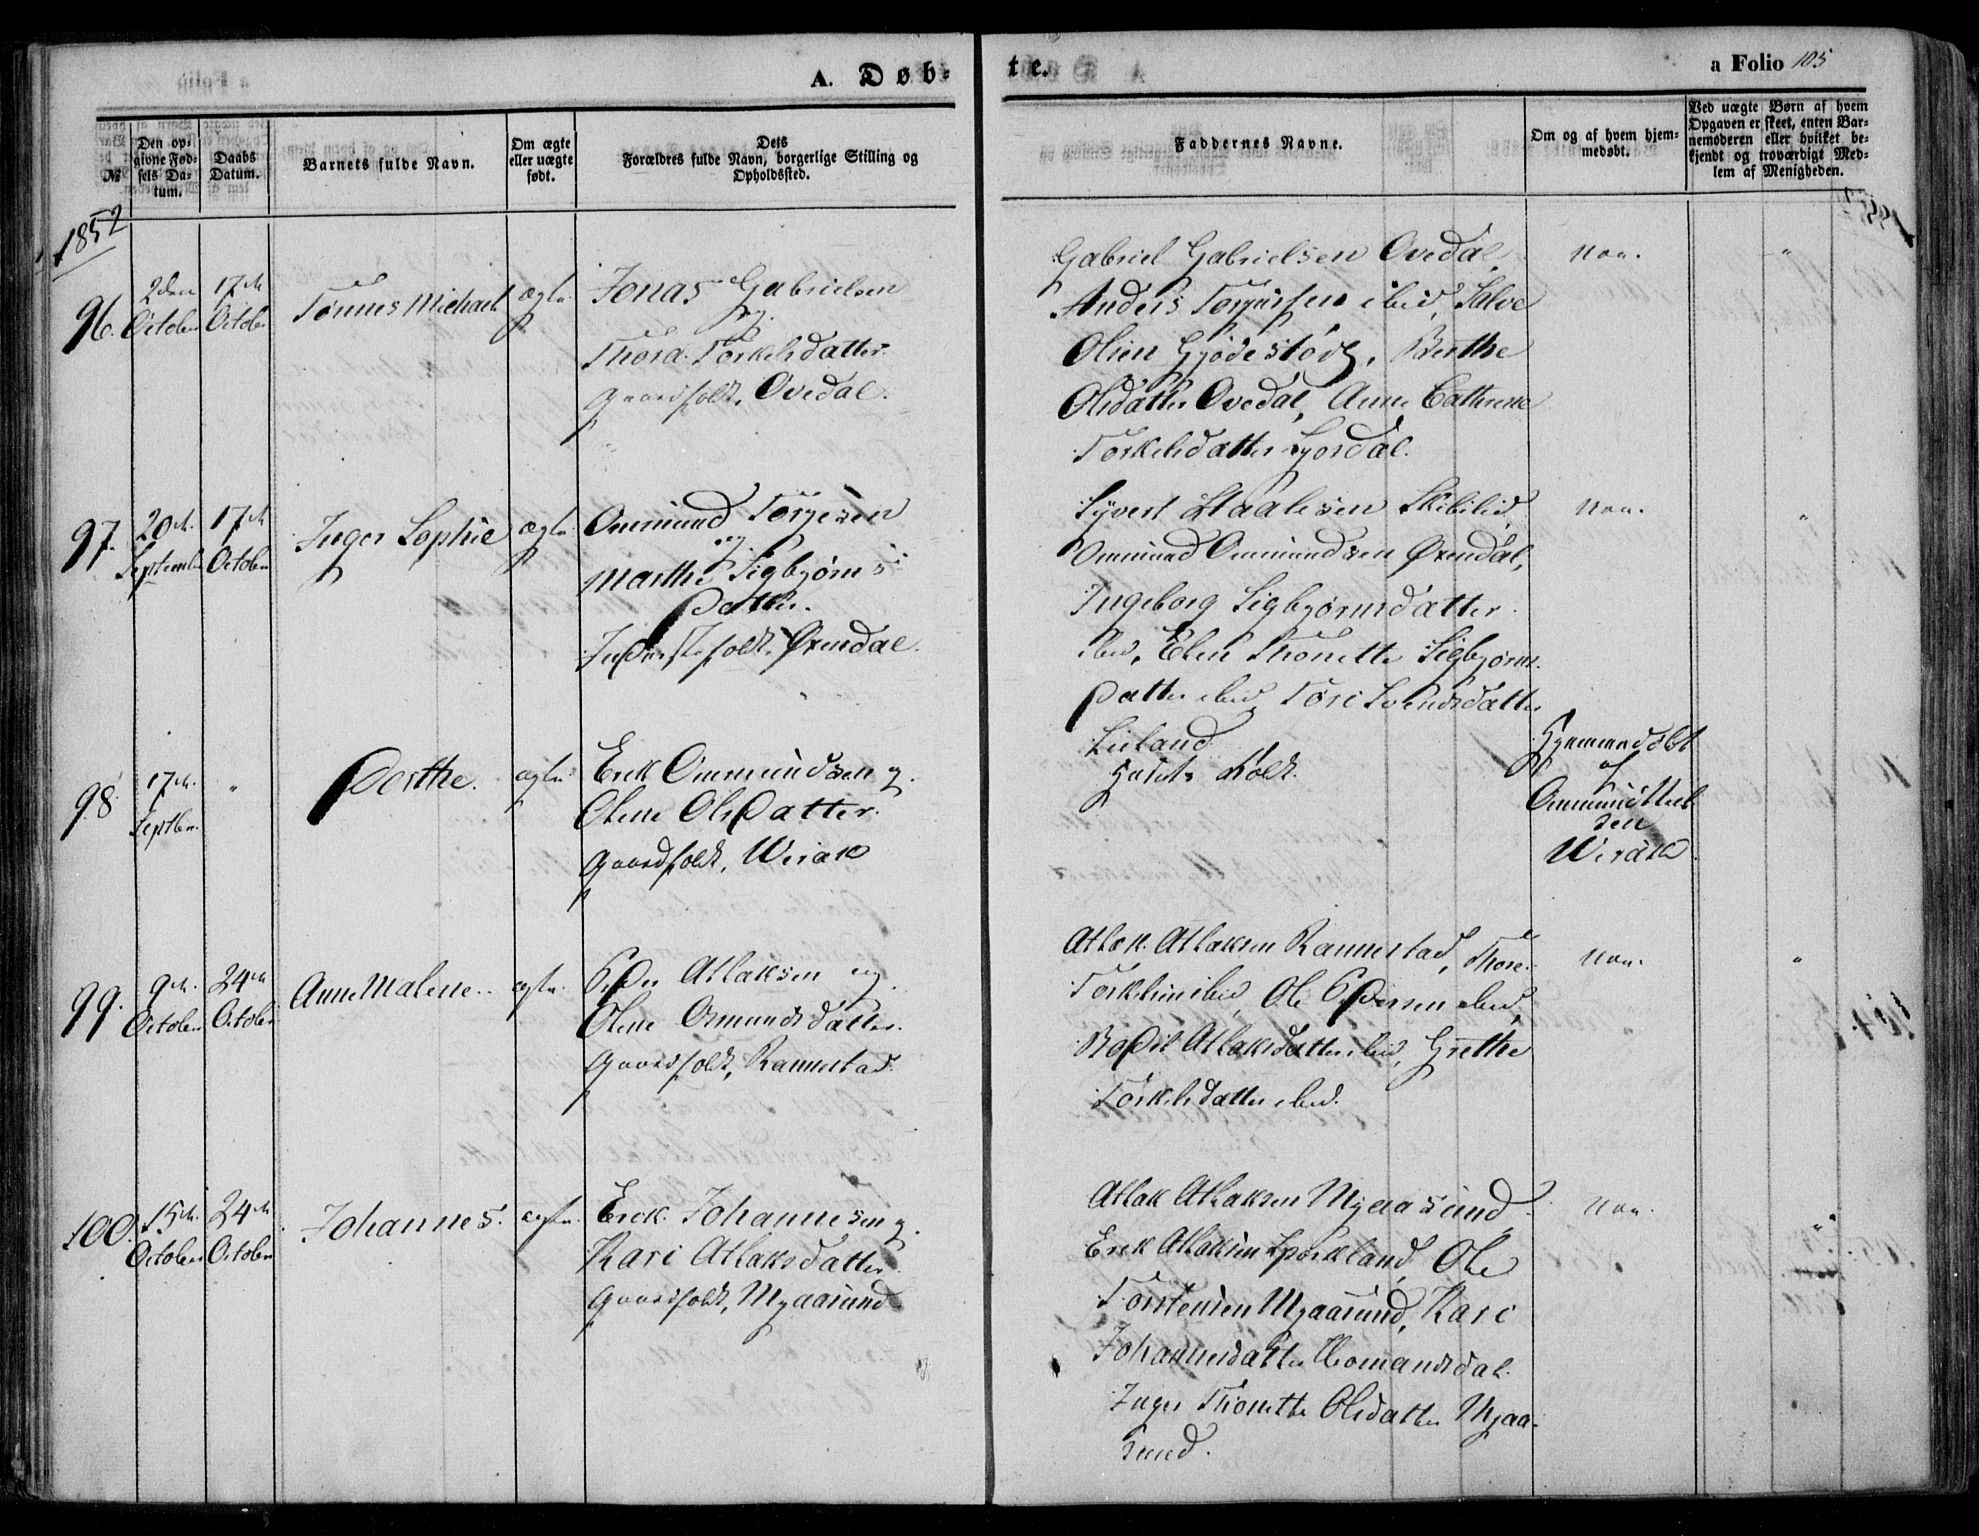 A. Døb-
te.
a Folio 105
№
Den op-
givne Fød-
sels Da-
tum.
Daabs
Datum.
Barnets fulde Navn.
Om ægte
eller uægte
født.
Dets
Forældres fulde Navn, borgerlige Stilling og
Opholdssted.
Faddernes Navne.
Om og af hvem hjem-
medøbt.
Ved uægte Børn af hvem
Opgaven er skeet, enten Bar-
nemoderen eller hvilket be-
kjendt og troværdigt Med-
lem af Menigheden.
1852
96.
2den
October
17de
October
Tønnes Michael
ægte
Jonas Gabrielsen
og
Thora Torkelsdatter
Gaardfolk, Ovedal.
Gabriel Gabrielsen Ovedal,
Anders Tørjussen ibid, Salve
Olsen Gjødestøl, Berthe
Olsdatter Ovedal, Anne Cathrene
Torkelsdatter Lyordal.
Nei.
"
97.
20de
September
17de
October
Inger Sophie
ægte
Ommund Torgesen
og
Marthe Sigbjørns
Datter.
Inderstefolk, Ørendal.
Syvert Staalesen Skibeliid
Ommund Ommundsen Ørendal,
Ingeborg Sigbjørnsdatter
ibid, Elen Thonette Sigbjørns
Datter ibid, Tori Svendsdatter
Liland
Nei.
"
98.
17de
Septbr.
"
Dorthe.
ægte
Erik Ommundsen og
Olene Olsdatter.
Gaardfolk, Wirak
Husets Folk.
Hjemmedøbt
af
Ommund
sen
Wirak
99.
9de
October
24de
October
Anne Malene.
ægte
Peder Atlaksen og
Olene Osmundsdatter.
Gaardfolk, Rannestad.
Atlak Atlaksen Rannestad, Thore
Torkelsen ibid, Ole Pedersen ibid,
Bodil Atlaksdatter ibid, Grethe
Torkelsdatter ibid.
Nei.
"
100.
15de
October
24de
October
Johannes.
ægte
Erek Johannesen og
Kari Atlaksdatter
Gaardfolk, Mjaasund
Atlak Atlaksen Mjaasund
Erek Atlaksen Sporkland, Ole
Torstensen Mjaasund, Kari
Johannesdatter Homandsdal
Inger Thonette Olsdatter Mjaa-
sund.
Nei.
"